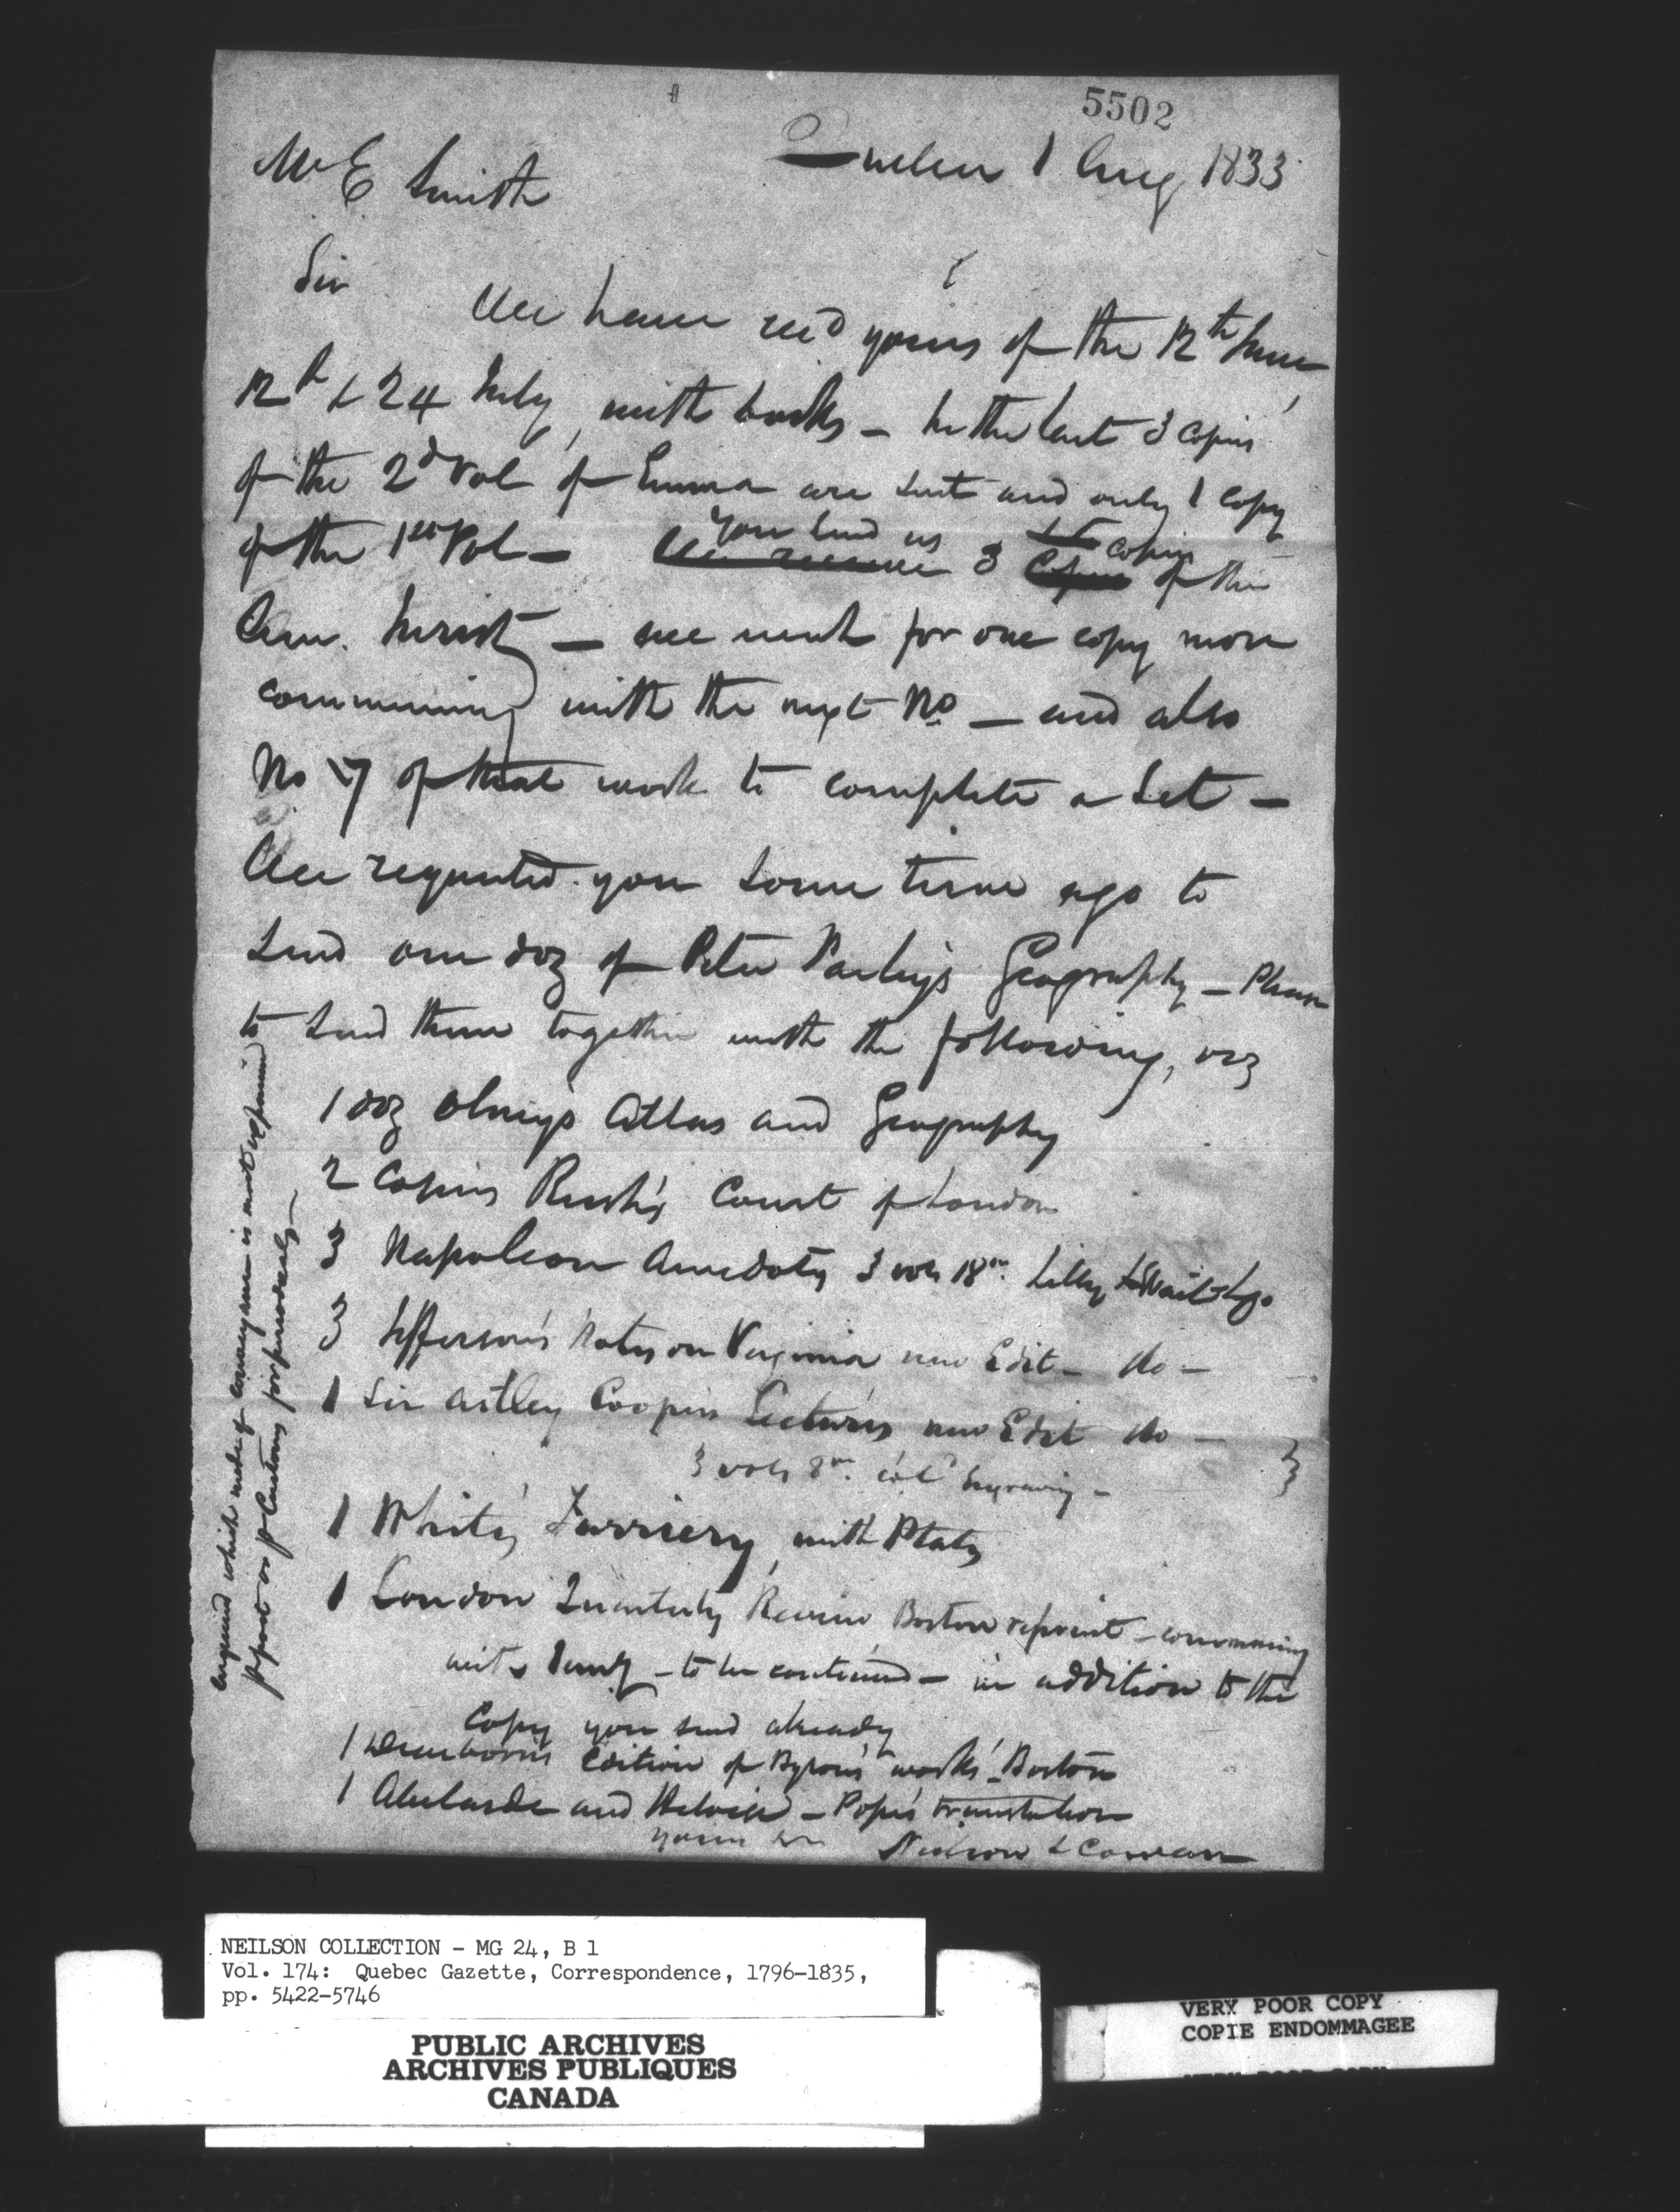 5502
Quebec 1 Aug 1833
Mr E Smith
Sir
We have recd yours of the 12th June
12th & 24 July, with books – In the last 3 copies
of the 2d Vol of Emma are sent and only 1 copy
of the 1st Vol – You send us 3 copies of the
Am. Jurist – we want for one copy more
commencing with the next No – and also
No 17 of that work to complete a set –
We requested you some time ago to
send one doz of Peter Parley's Geography – Please
to send them together with the following, viz
1 doz Olney's Atlas and Geography
2 Copies Rush's Court of London
3 Napoleon Anecdotes 3 vols 18mo. Lilly & Wait & Co
3 Jefferson's Notes on Virginia new Edit – do –
1 Sir Astley Cooper's Lectures new Edit do –
3 vols 8vo. cold Engraving –
1 White's Farriery, with Plates
1 London Quarterly Review Boston reprint – commencing
with – to be continued – in addition to the
Copy you send already
1 Dearborn's Edition of Byron's works – Boston
1 Abelarde and Heloise – Pope's translation
yours &c Neilson & Cowan
enquired which mode of conveyance is most expensive
pr post or pr Customs for periodicals –
NEILSON COLLECTION - MG 24, B 1
Vol. 174: Quebec Gazette, Correspondence, 1796-1835,
pp. 5422-5746
PUBLIC ARCHIVES
ARCHIVES PUBLIQUES
CANADA
VERY POOR COPY
COPIE ENDOMMAGEE